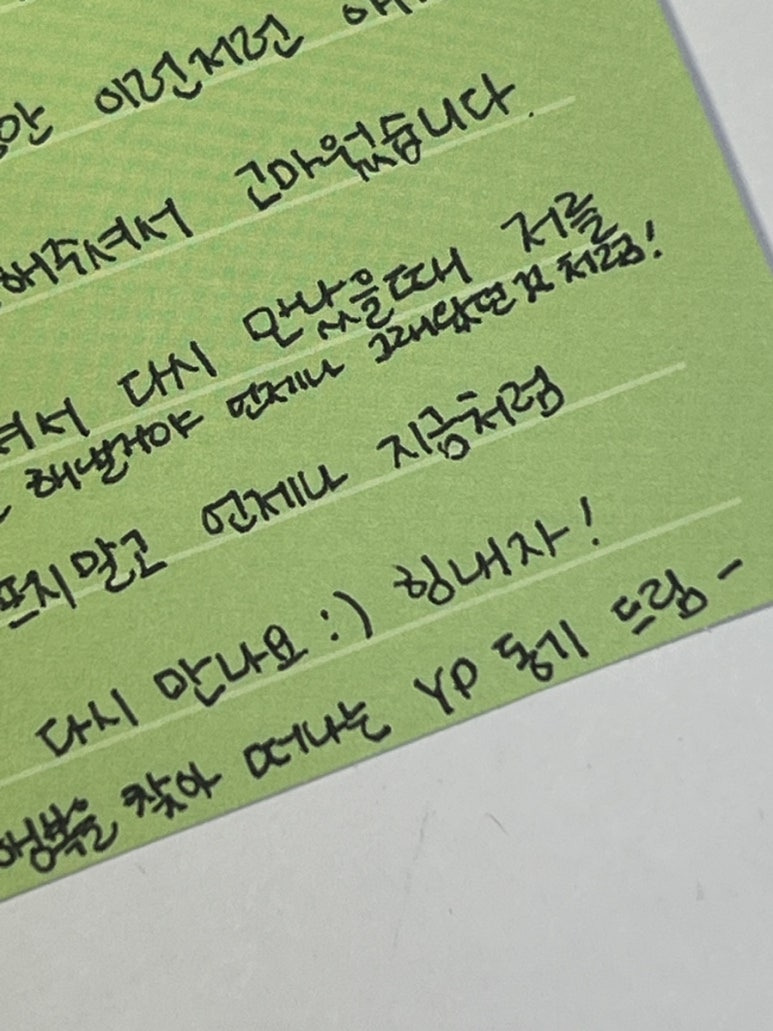 이런저런
해주셔서 고마웠습니다.
다시 만났을때 저를
해낼거야 언제나 그래왔던것처럼!
말고 언제나 지금처럼
다시 만나요 :) 힘내자!
행복을 찾아 떠나는 YP 동기 드림-